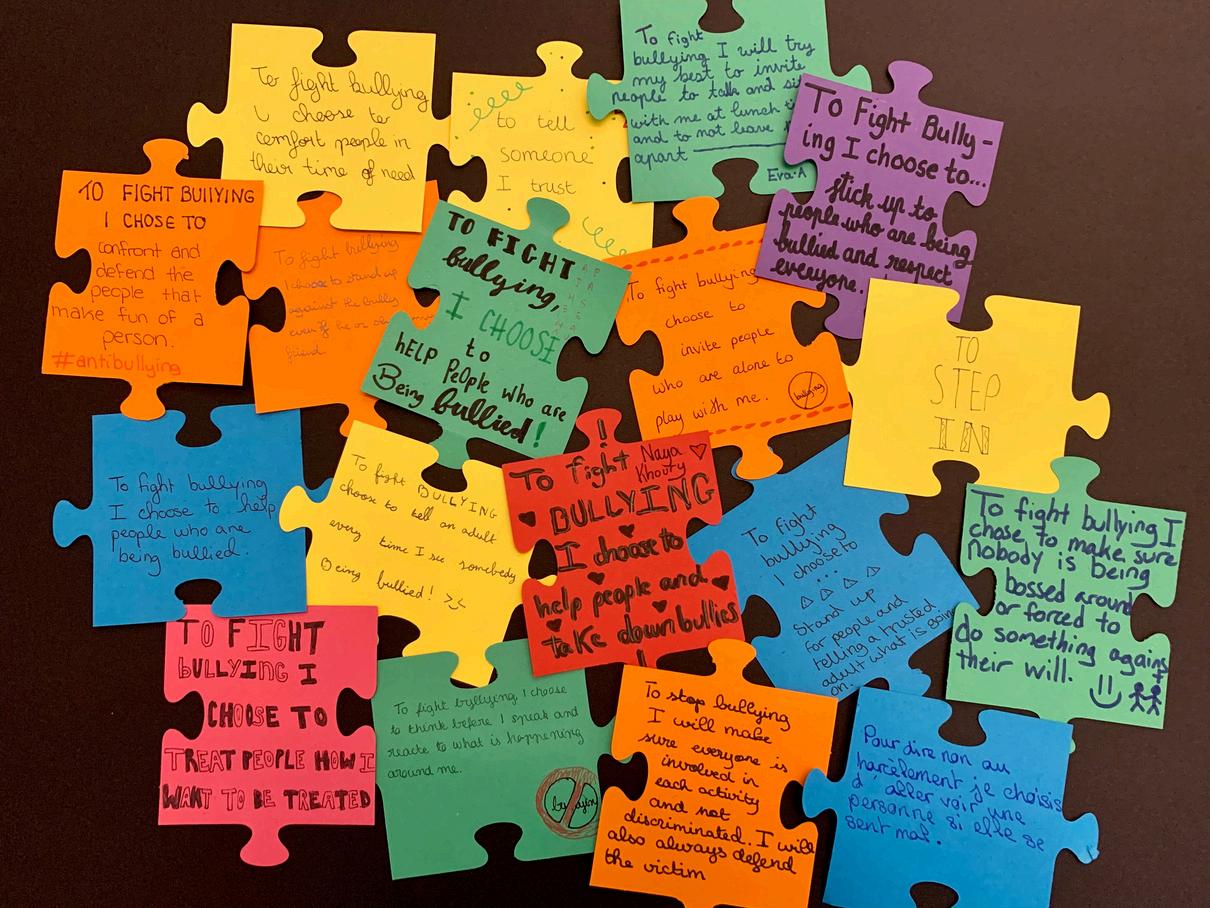 To fight bullying
I choose to
comfort people in
their time of need
to tell
someone
I trust
To fight
bullying I will try
my best to invite
people to talk and sit
with me at lunch
and to not leave
apart
Eva.A
To Fight Bully-
ing I choose to...
stick up to
people who are being
bullied and respect
everyone.
TO FIGHT BULLYING
I CHOSE TO
confront and
defend the
people that
make fun of a
person.
#antibullying
To fight bullying
I choose to stand up
against the bully
even if he or she
friend
TO FIGHT
bullying,
I CHOOSE
to
hELP PeOPLe who are
Being bullied!
To fight bullying
choose to
invite people
who are alone to
play with me.
bullying
TO
STEP
IN
To fight bullying
I choose to help
people who are
being bullied.
To fight BULLYING
choose to tell an adult
every time I see somebody
Being bullied!
To fight
Naya
Khoury
BULLYING
I choose to
help people and
take down bullies
To fight
bullying
I choose to
...
Stand up
for people and
telling a trusted
adult what is going
on.
To fight bullying I
chose to make sure
nobody is being
bossed around
or forced to
do something against
their will.
TO FIGHT
bULLYING I
CHOOSE TO
TREAT PEOPLE HOW I
WANT TO BE TREATED
To fight bullying I choose
to think before I speak and
reacte to what is happening
around me.
To stop bullying
I will make
sure everyone is
involved in
each activity
and not
discriminated. I will
also always defend
the victim
Pour dire non au
harcèlement je choisis
d'aller voir une
personne si elle se
sent mal.